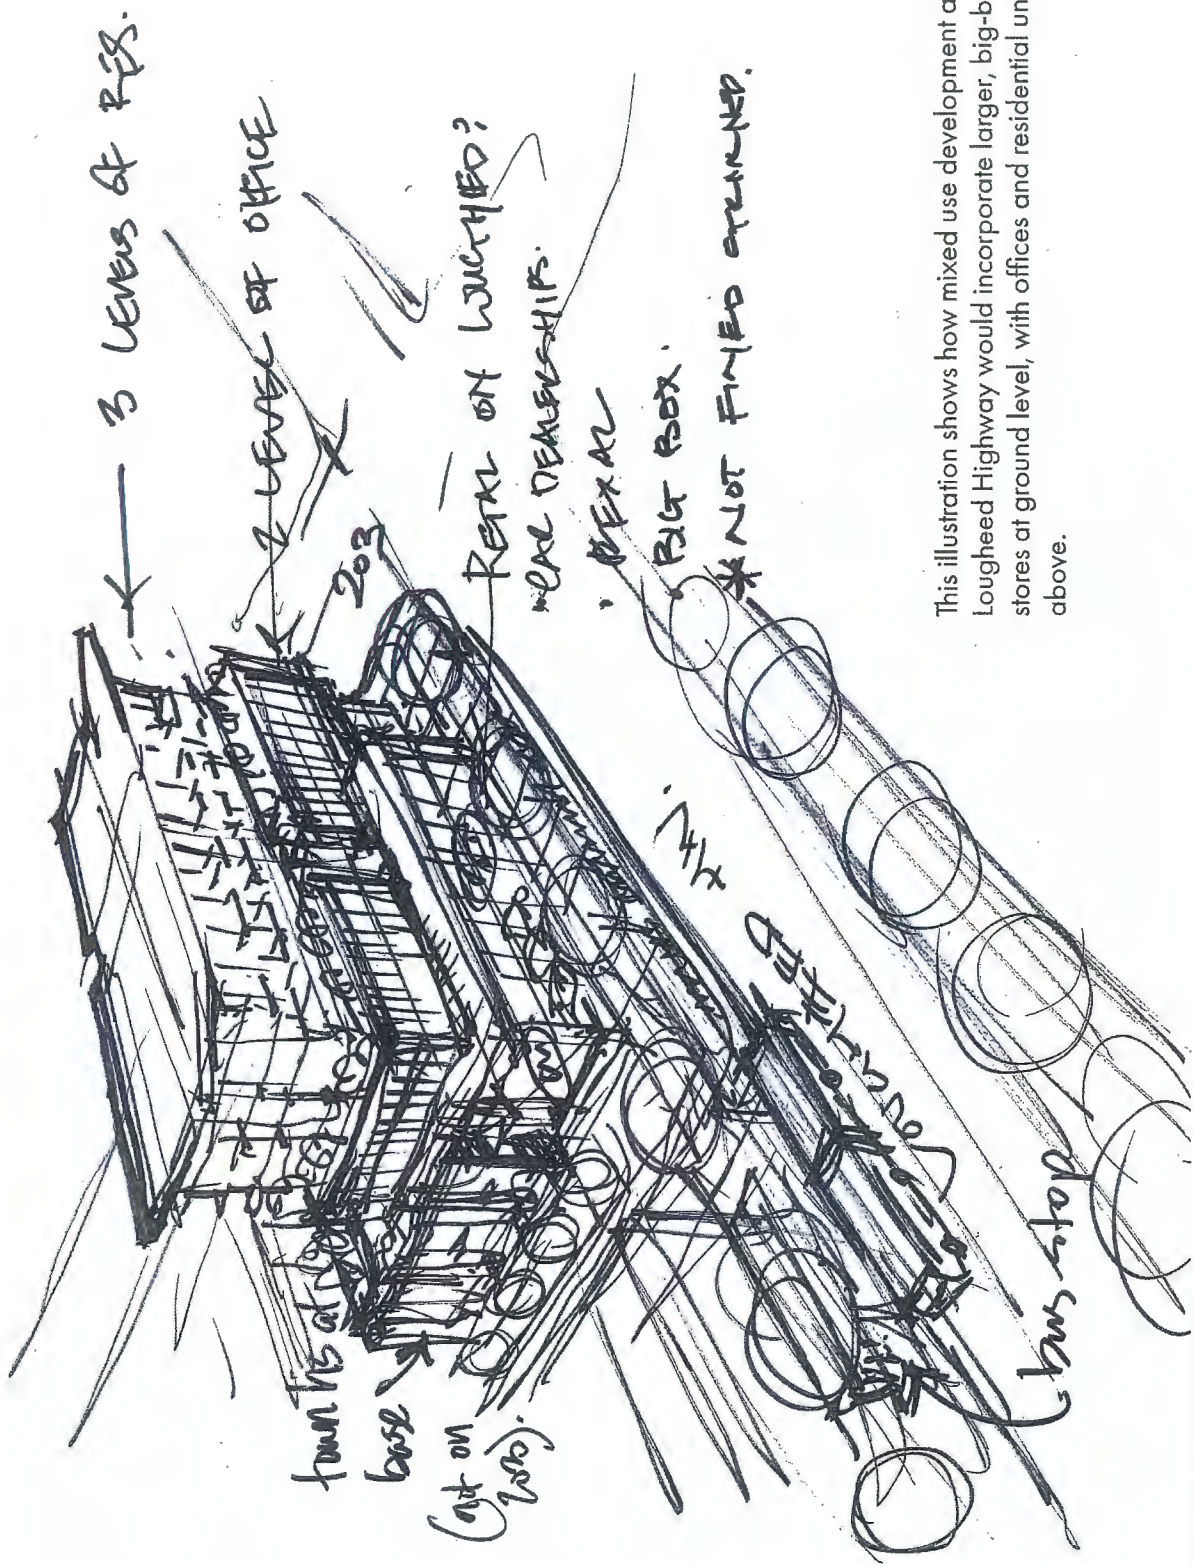 3 LEVELS OF RES.
2 LEVELS OF OFFICE
203
RETAIL ON LOUGHEED?
CAR DEALERSHIPS.
REXALL
BIG BOX.
* NOT FINED GRAINED.
town hs at
base
(not on
203).
LOUGH
bus stop
This illustration shows how mixed use development a
Lougheed Highway would incorporate larger, big-b
stores at ground level, with offices and residential un
above.